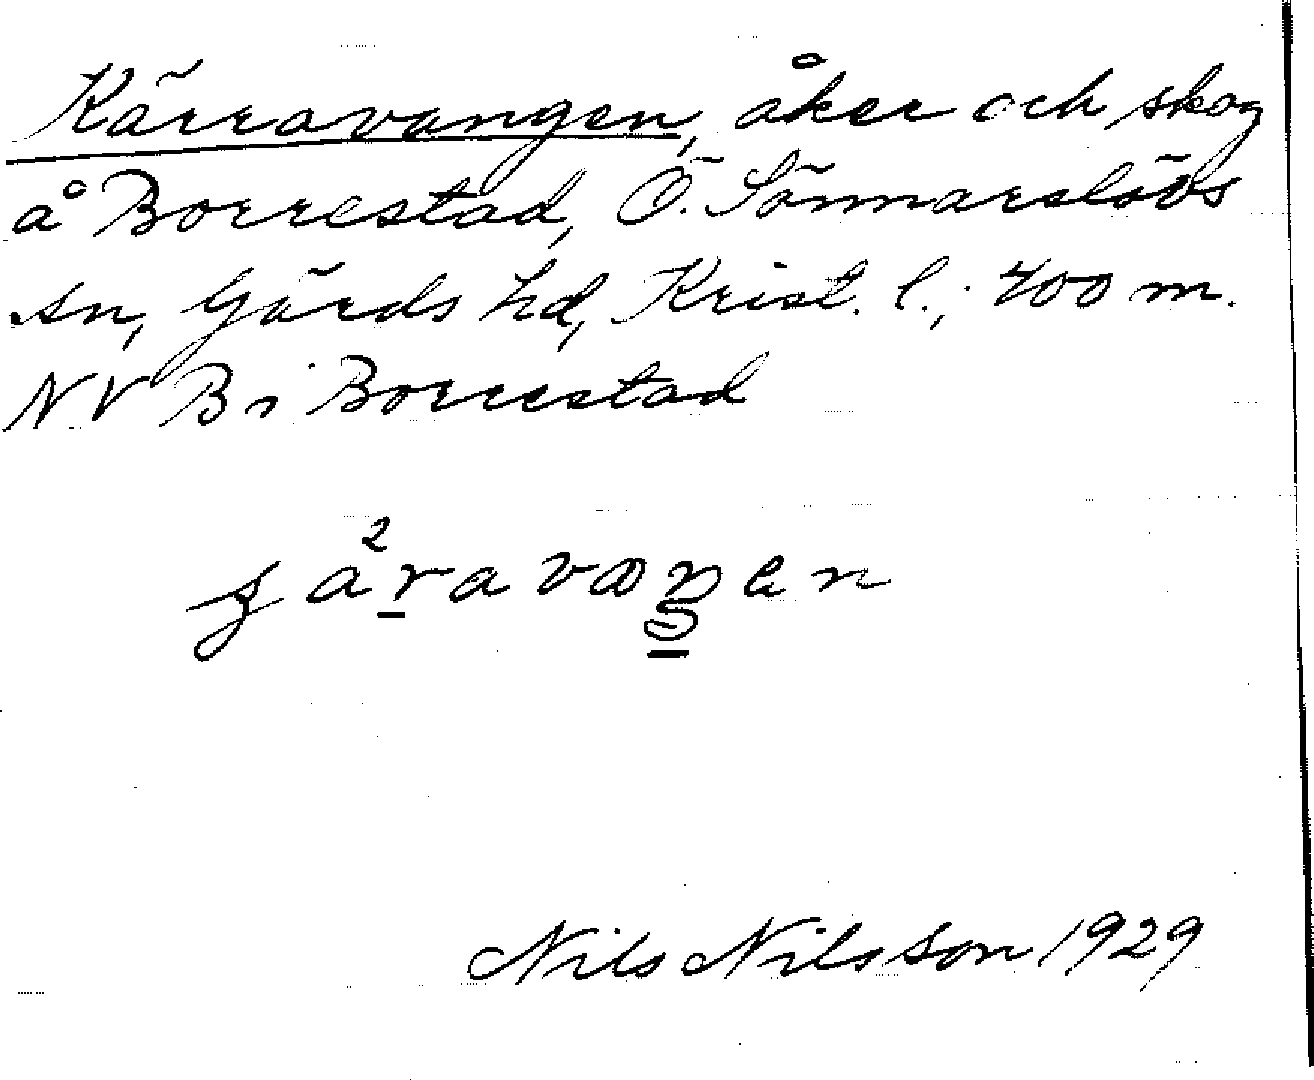 Kärravangen, åker och skog
å Borrestad, Ö. Sönnarslövs
sn, Gärds hd, Krist. l.; 400 m.
NV Bs Borrestad
Nils Nilsson 1929